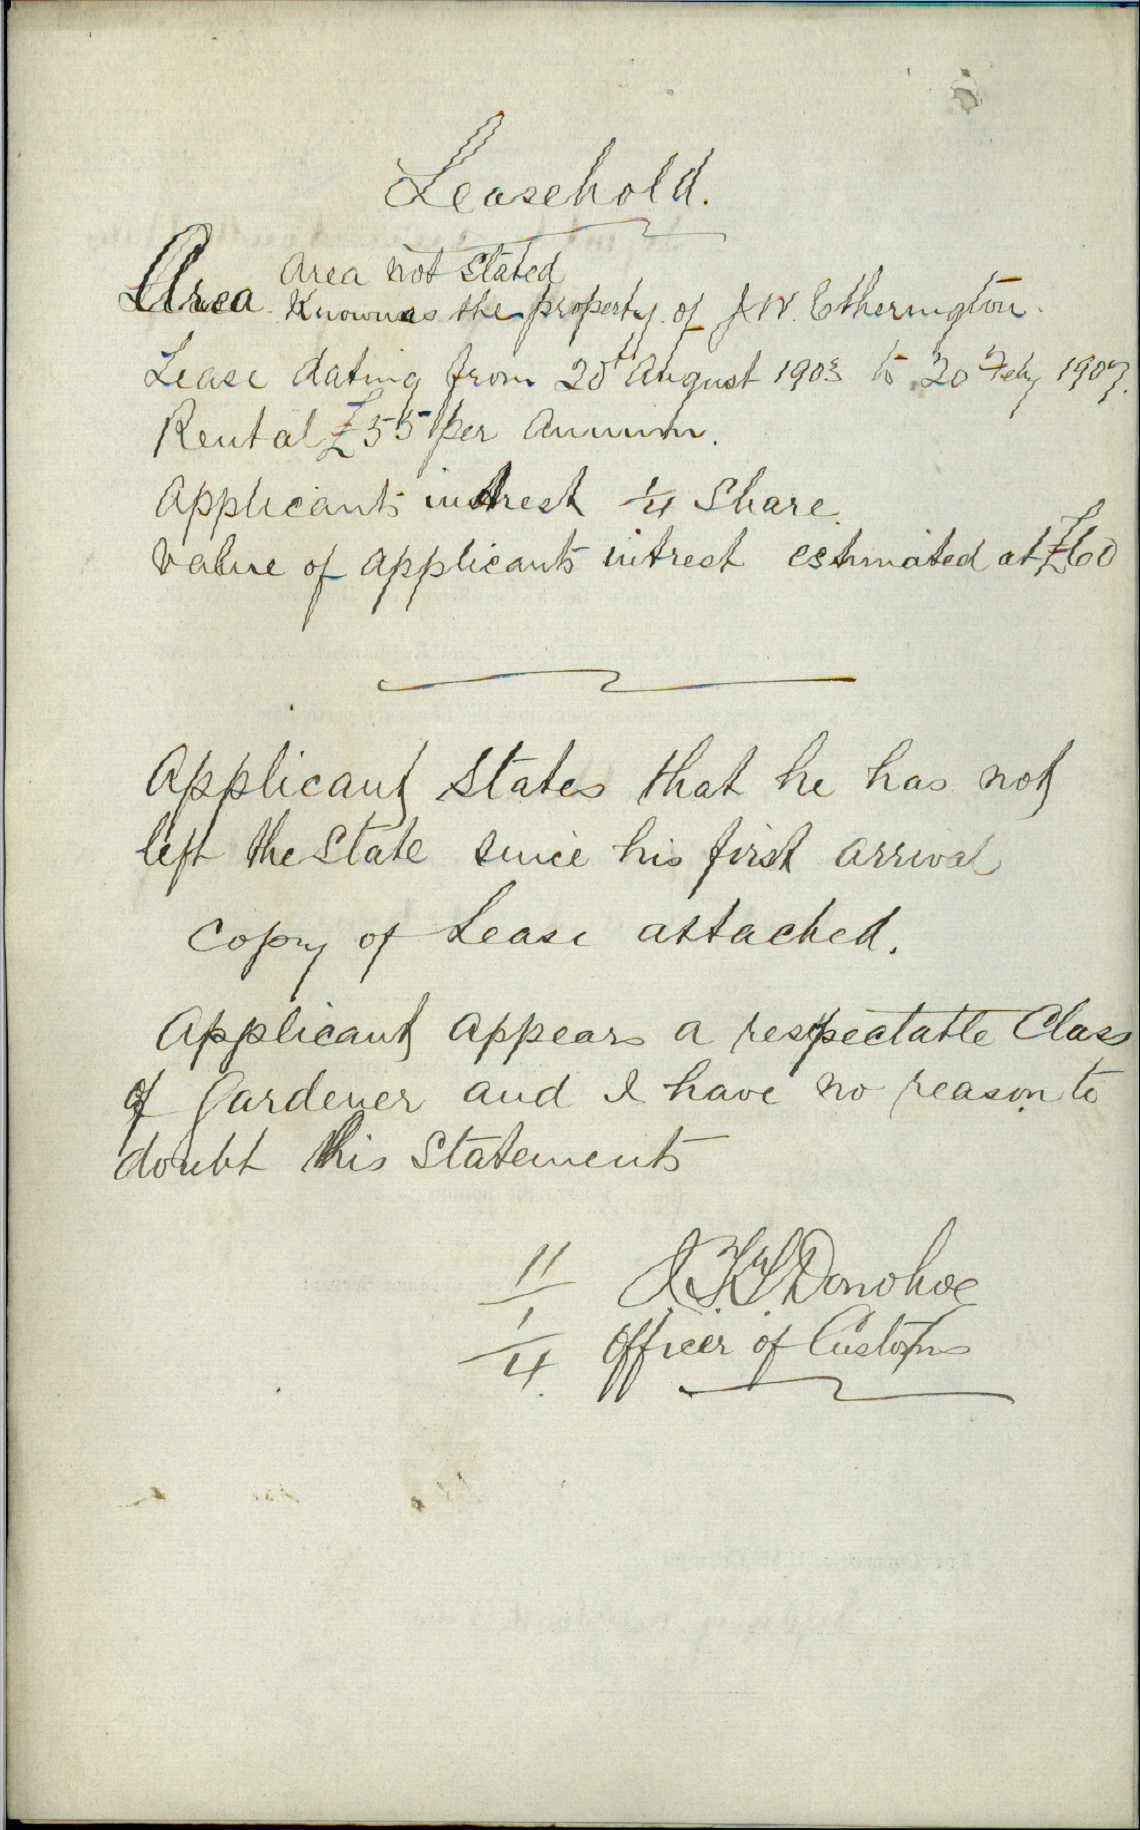 Leasehold.
Area not Stated
Area. Known as the property of J W. Etherington.
Lease dating from 20th August 1903 to 20 Feby 1907.
Rental £55 per Annum.
Applicants intrest 1/4 Share.
Value of applicants intrest estimated at £60
Applicant States that he has not
left the State since his first arrival
Copy of Lease attached.
Applicant appears a respectable Class
of Gardener and I have no reason to
doubt his Statements
11/1/4. Donohoe
Officer of Customs